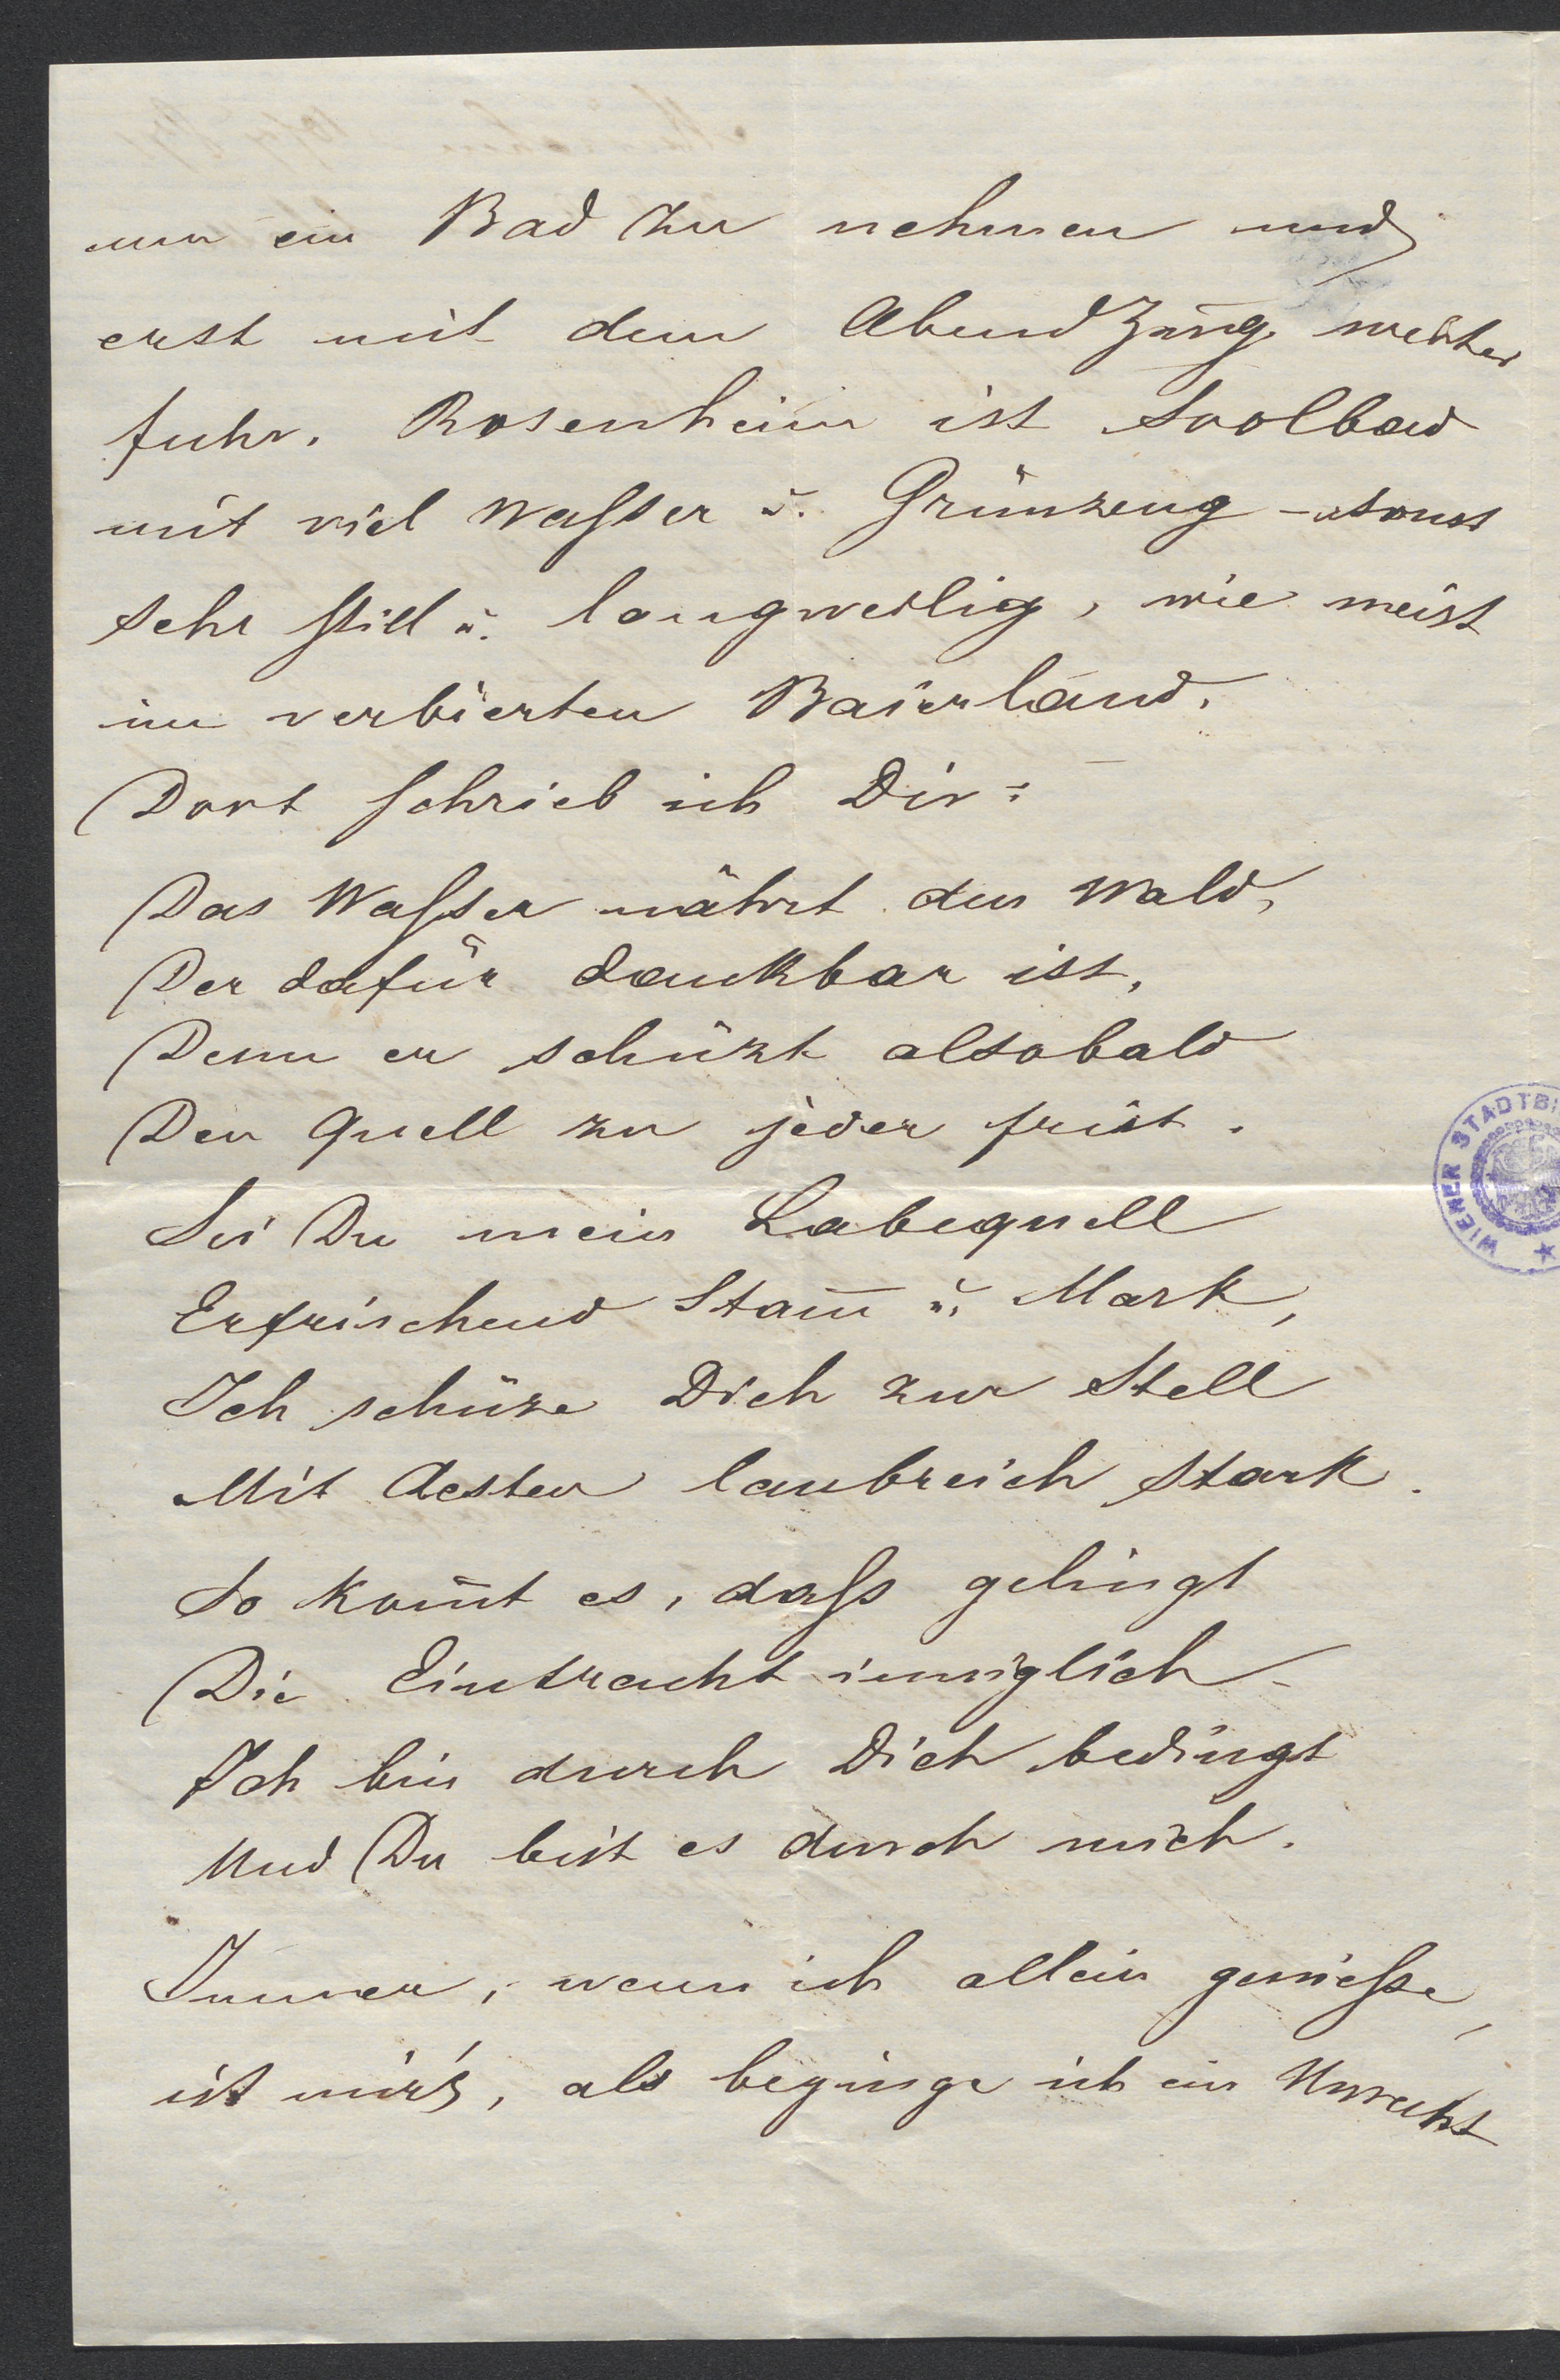 um ein Bad zu nehmen und
erst mit dem Abendzug weiter
fuhr. Rosenheim ist Soolbad
mit viel Wasser u. Grünzeug – sonst
sehr still u. langweilig, wie meist
im verbierten Baierland.
Dort schrieb ich Dir:
Das Wasser nährt den Wald,
Der dafür dankbar ist,
Denn er schüzt alsobald
Den Quell zu jeder Frist.
Sei Du mein Labequell
Erfrischend Stam̅ u. Mark,
Ich schüze Dich zur Stell
Mit Aesten laubreich stark.
So kom̅t es, dass gelingt
Die Eintracht inniglich –
Ich bin durch Dich bedingt
Und Du bist es durch mich.
Immer, wenn ich allein geniesse,
ist mir's, als beginge ich ein Unrecht
WIENER STADTBI